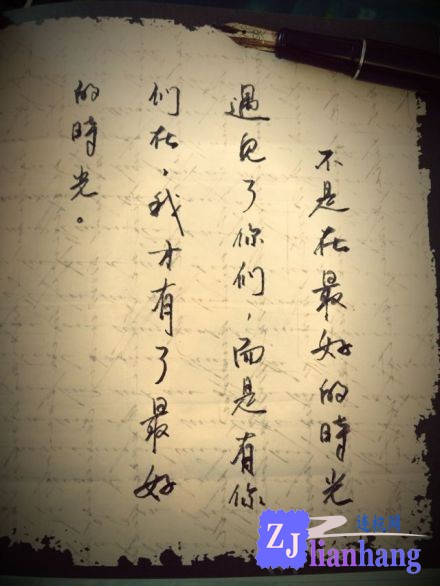 不是在最好的時光
遇見了你们,而是有你
们在,我才有了最好
的時光。
ZJ
lianhang